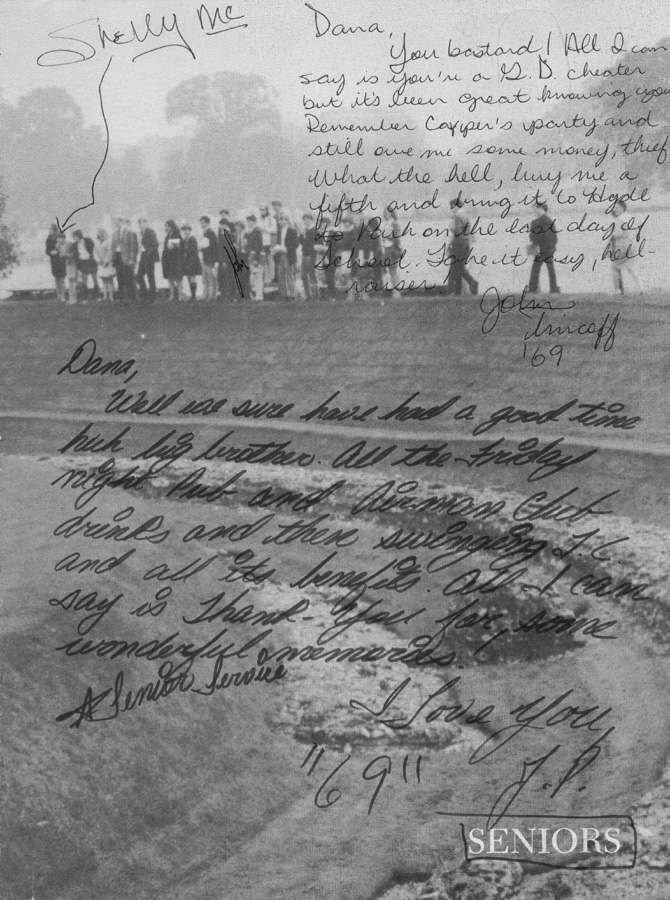 Shelly Mc
Dana,
You bastard! All I can
say is you're a G.D. cheater
but it's been great knowing you
Remember Casper's party and
still owe me some money, thief
What the hell, buy me a
fifth and bring it to Hyde
to Park on the last day of
School. Take it easy, hell-
raiser
John
'69
Dana,
Well we sure have had a good time
huh big brother. All the Friday
night Pub and Airman Club
drinks and then swinging T.C.
and all its benefits. All I can
say is Thank-You for, some
wonderful memories!
A Senior Service
I Love You,
"69" J.P.
SENIORS